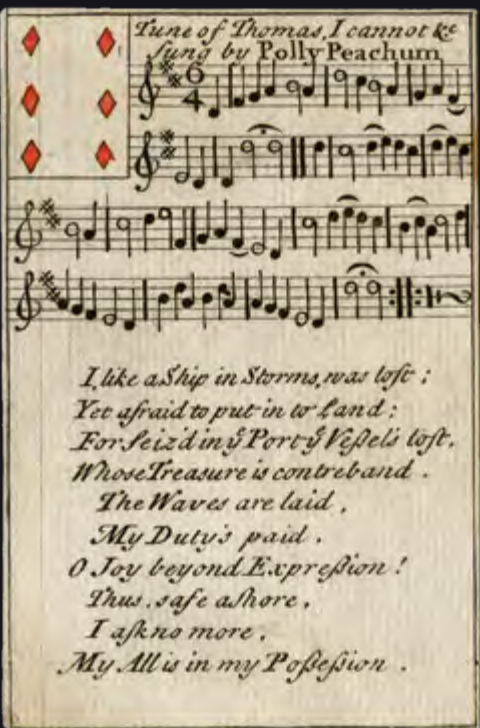 Tune of Thomas, I cannot &c
sung by Polly Peachum
6
4
I, like a Ship in Storms, was tost;
Yet afraid to put in to Land:
For seiz'd in yͤ Port yͤ Veſsel's lost,
Whose Treasure is contreband.
The Waves are laid,
My Duty's paid.
O Joy beyond Expreſsion!
Thus, safe ashore,
I ask no more,
My All is in my Poſseſsion.